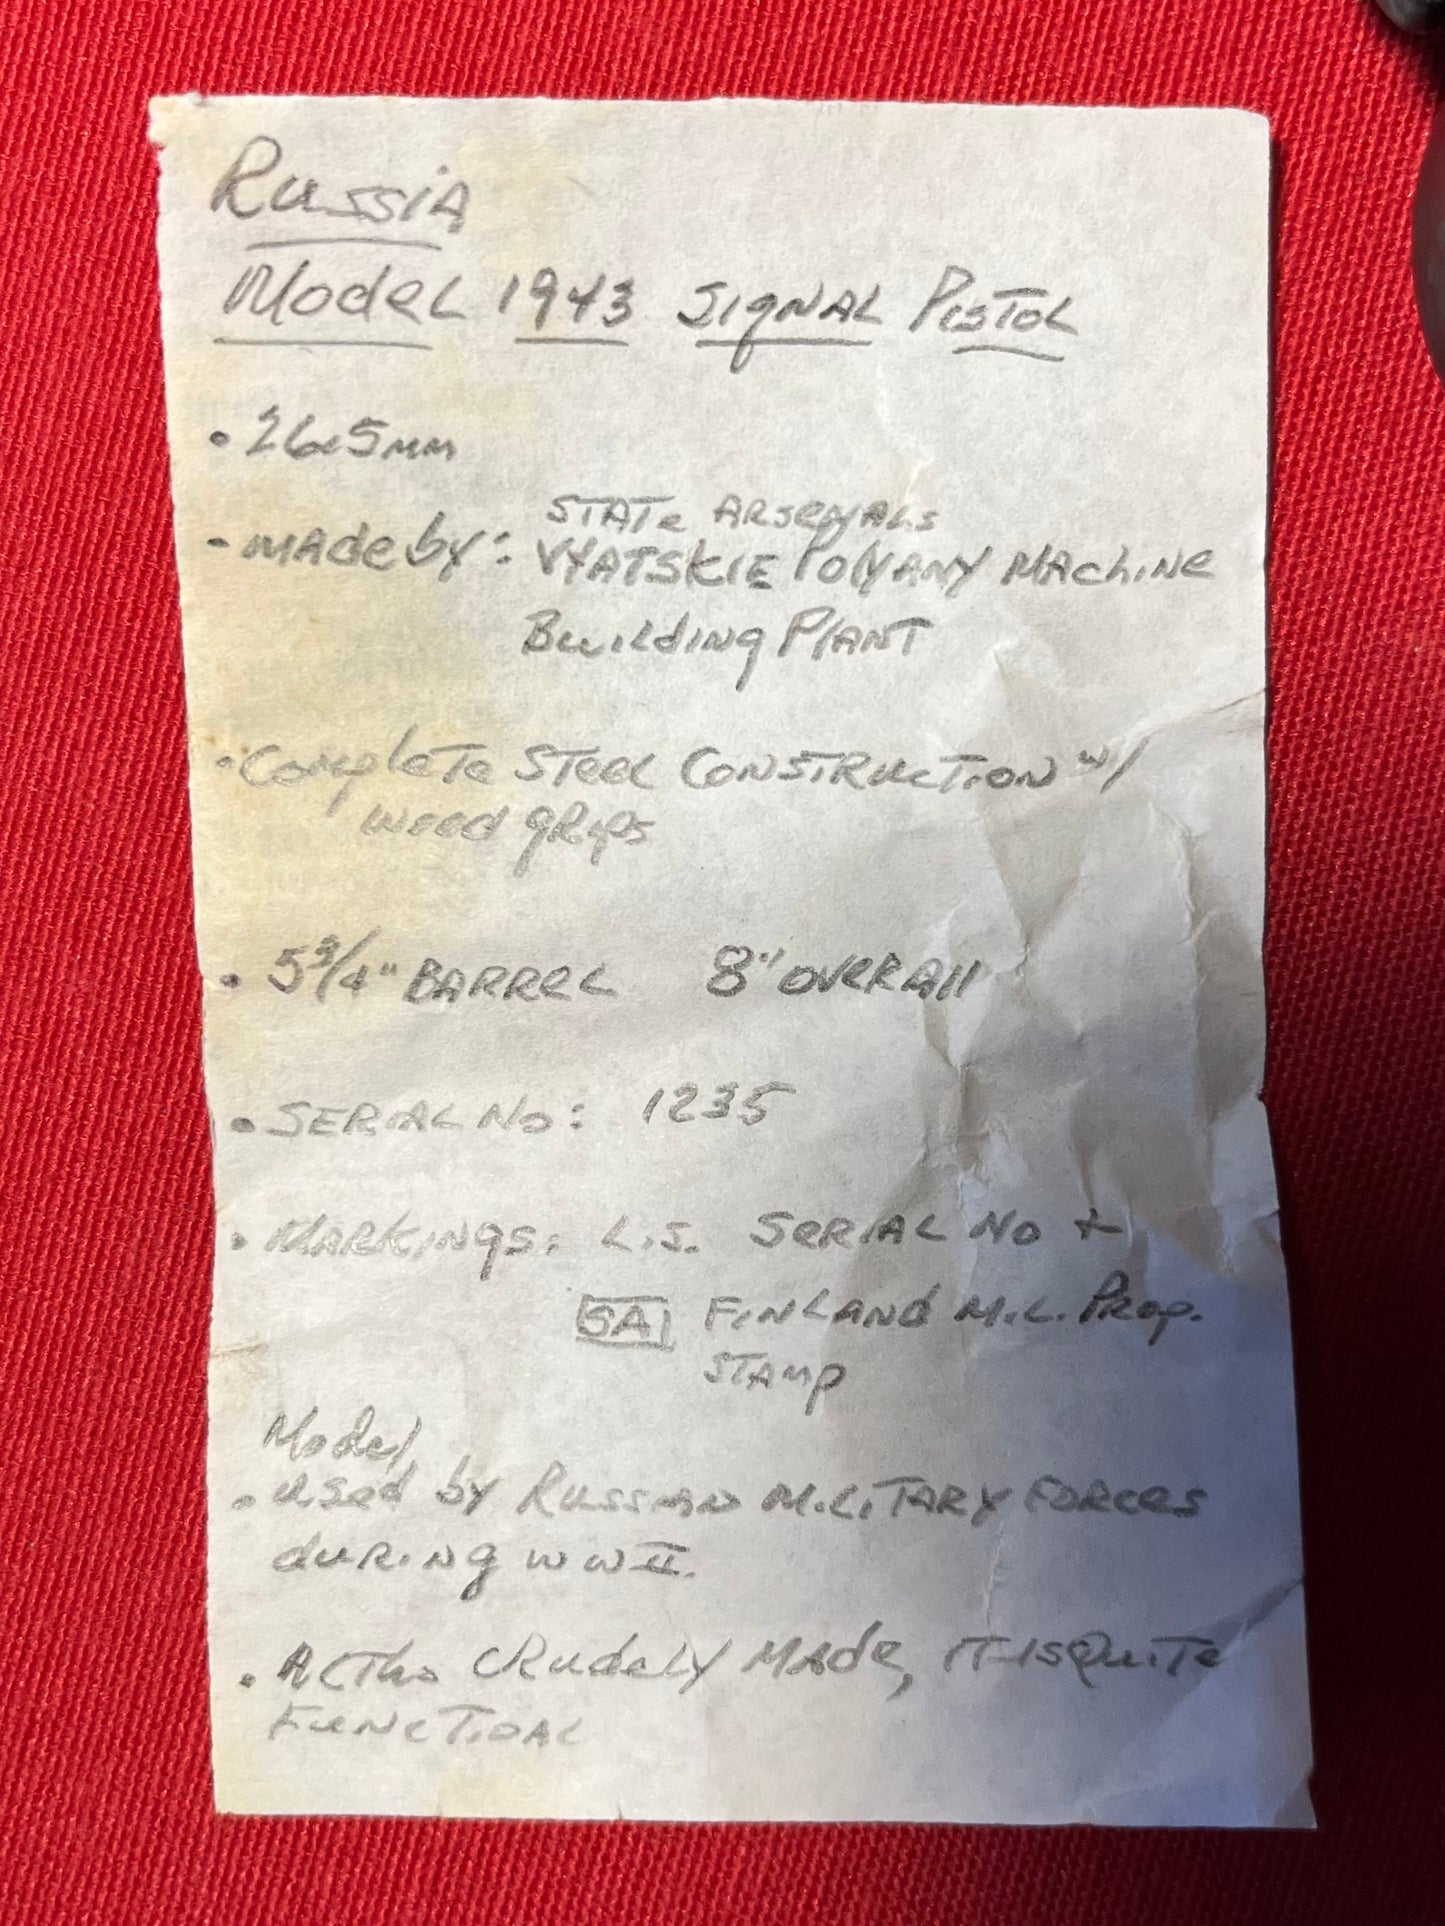 Russia
Model 1943 Signal Pistol
• 26.5mm
STATE ARSENALS
- made by: VYATSKIE Polyany Machine
Building Plant
• Complete Steel Construction w/
wood grips
• 5 3/4" BARREL 8" overall
• SERIAL No: 1235
• MARKINGS: L.S. Serial No +
SA FINLAND MIL. Prop.
STAMP
Model
• used by Russian Military Forces
during WWII.
• Altho crudely made, it is quite
Functioal